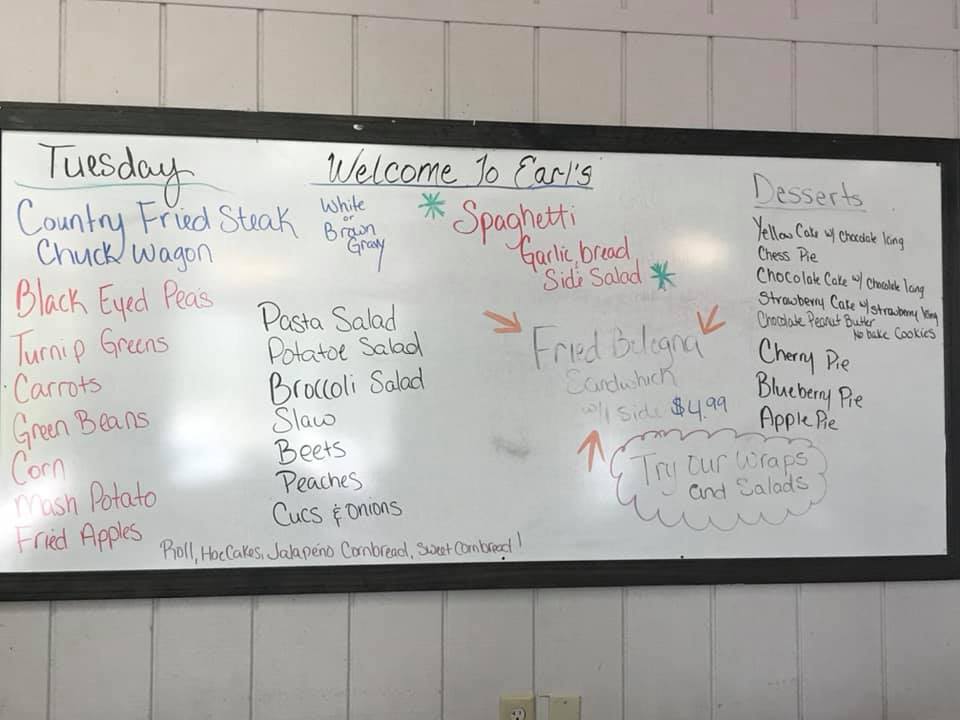 Tuesday
Welcome To Earl's
Country Fried Steak
Chuck Wagon
White
or
Brown
Gravy
Black Eyed Peas
Turnip Greens
Carrots
Green Beans
Corn
Mash Potato
Fried Apples
Pasta Salad
Potatoe Salad
Broccoli Salad
Slaw
Beets
Peaches
Cucs & Onions
Roll, HoeCakes, Jalapeño Cornbread, Sweet Cornbread!
Spaghetti
Garlic bread
Side Salad
Fried Bologna
Sandwhich
w/1 side $4.99
Try our Wraps
and Salads
Desserts
Yellow Cake w/ Chocolate Icing
Chess Pie
Chocolate Cake w/ Chocolate Icing
Strawberry Cake w/ strawberry Icing
Chocolate Peanut Butter
No bake Cookies
Cherry Pie
Blueberry Pie
Apple Pie